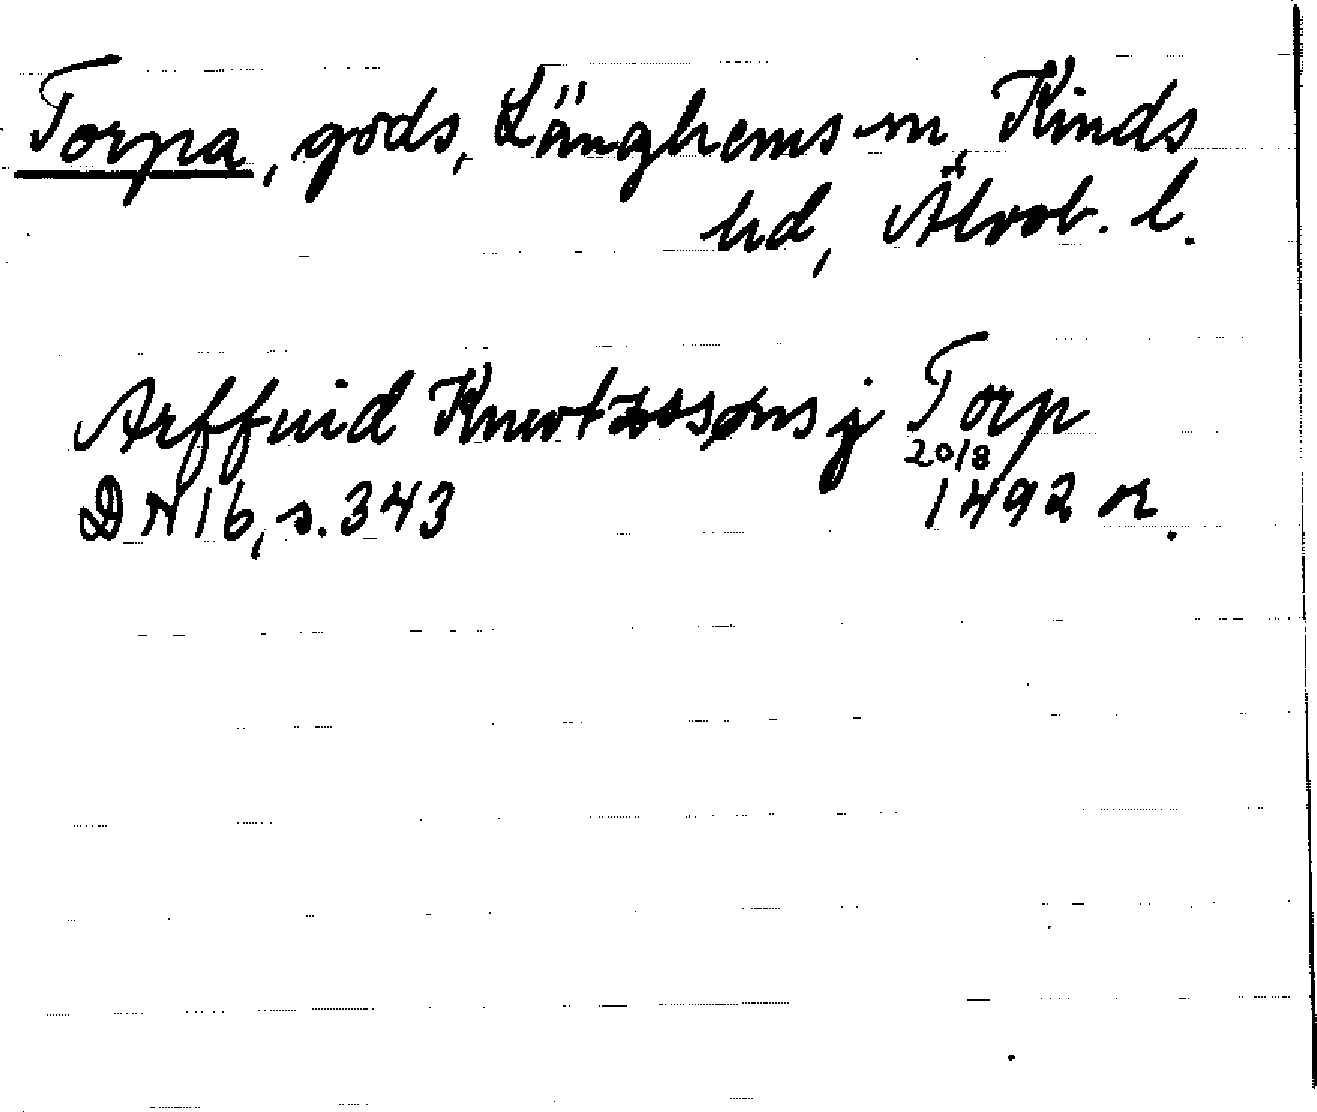 Torpa, gods, Länghems sn, Kinds
hd, Älvsb. l.
Arffuid Knwtzssøns j Torp
20/8
DN 16, s. 343 1492 or.